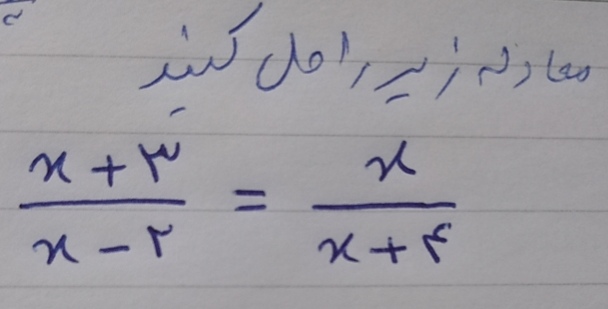 معادله زیر را حل کنید
x + ۳ / x - ۲ = x / x + ۴